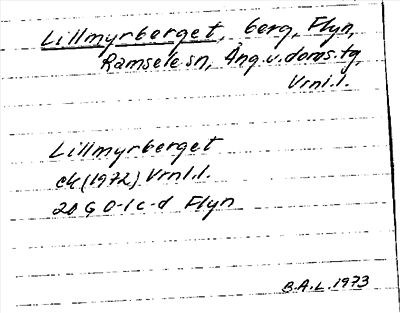 Lillmyrberget, berg, Flyn,
Ramsele sn, Ång.v.doms.tg,
Vrnl.l.
Lillmyrberget
ek (1972) Vrnl.l.
20 G 0-1 c-d Flyn
B.A.L. 1973